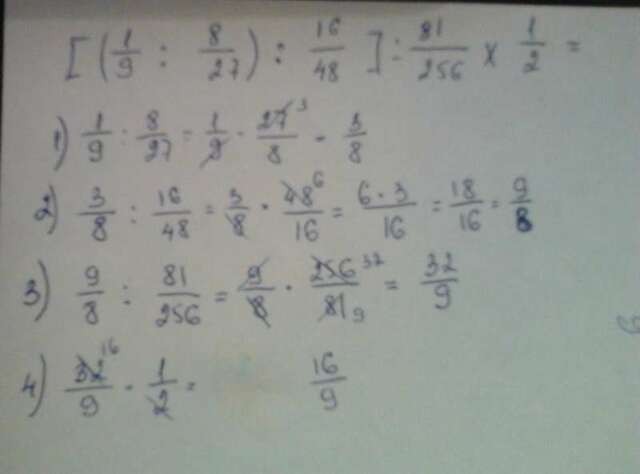 [(1/9 : 8/27) : 16/48] : 81/256 x 1/2 =
1) 1/9 : 8/27 = 1/9 · 27/8 3 = 3/8
2) 3/8 : 16/48 = 3/8 · 48/16 6 = 6·3/16 = 18/16 = 9/8
3) 9/8 : 81/256 = 9/8 · 256/81 32 9 = 32/9
4) 32/9 16 · 1/2 = 16/9